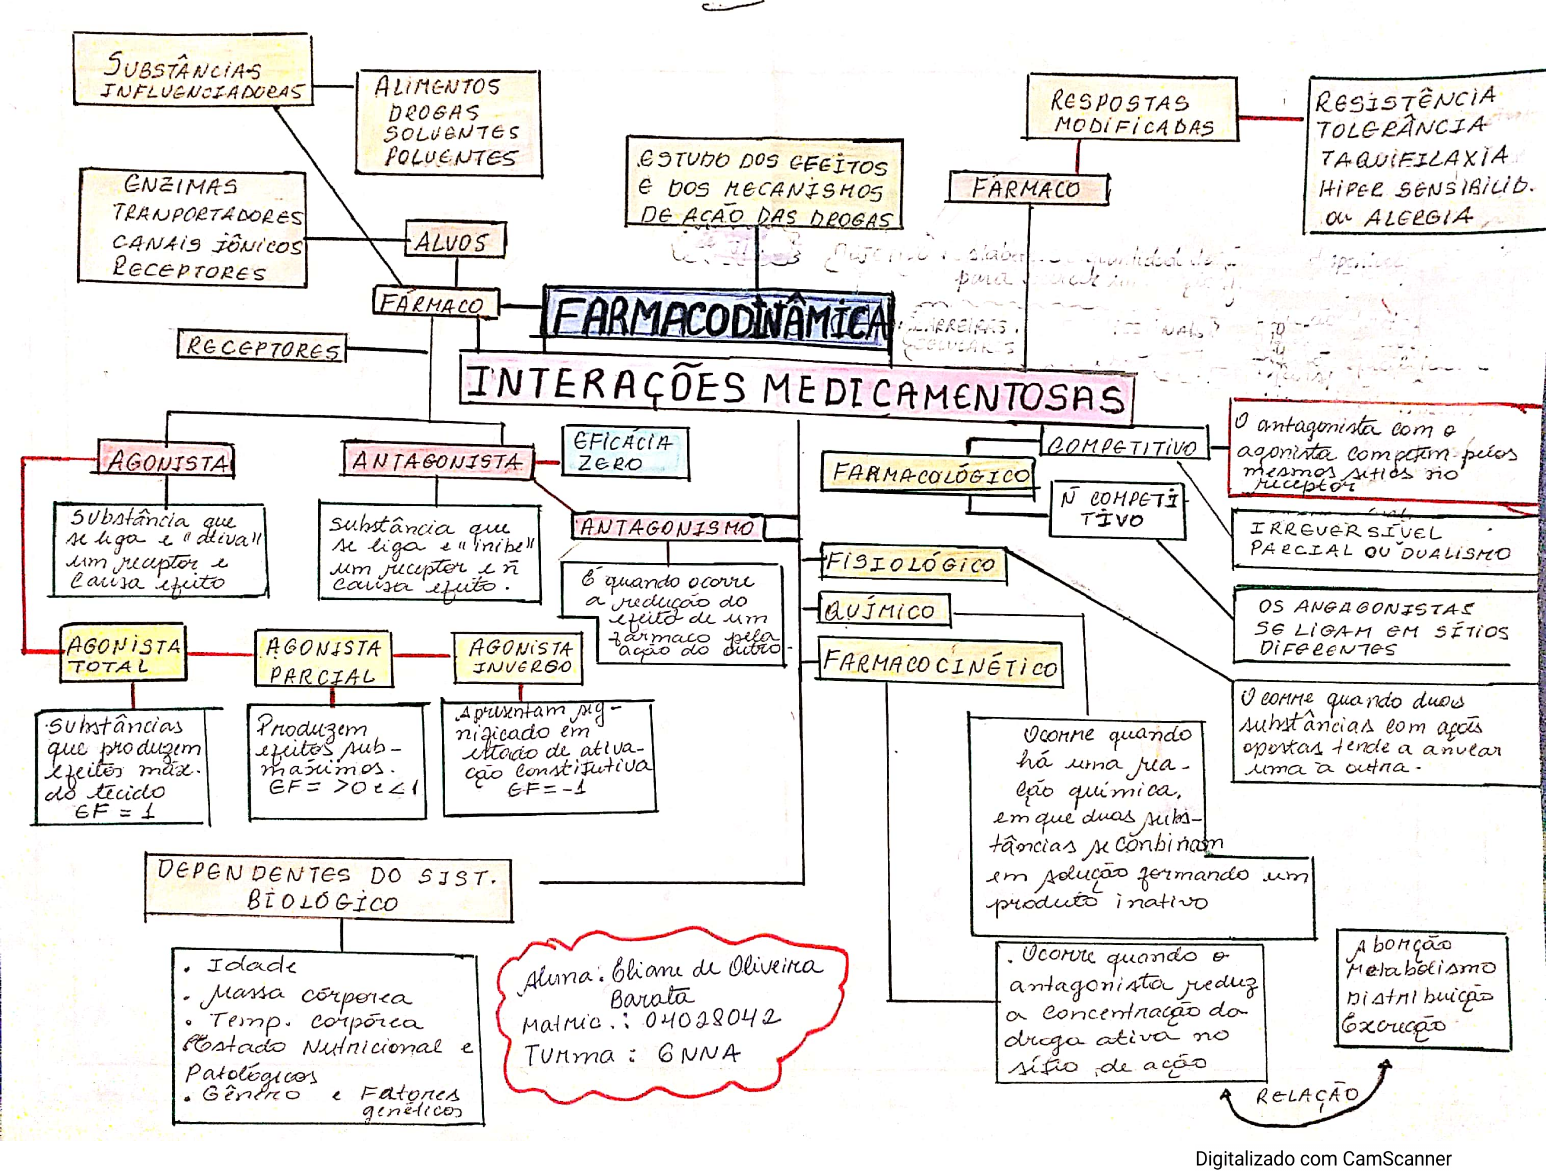 SUBSTÂNCIAS
INFLUENCIADORAS
ALIMENTOS
DROGAS
SOLVENTES
POLUENTES
ENZIMAS
TRANPORTADORES
CANAIS IÔNICOS
RECEPTORES
ALVOS
FÁRMACO
RECEPTORES
ESTUDO DOS EFEITOS
E DOS MECANISMOS
DE AÇÃO DAS DROGAS
RESPOSTAS
MODIFICADAS
RESISTÊNCIA
TOLERÂNCIA
TAQUIFILAXIA
HIPER SENSIBILID.
OU ALERGIA
FÁRMACO
FARMACODINÂMICA
INTERAÇÕES MEDICAMENTOSAS
AGONISTA
Substância que
se liga e "ativa"
um receptor e
causa efeito
ANTAGONISTA
EFICÁCIA
ZERO
substância que
se liga e "inibe"
um receptor e ñ
causa efeito.
ANTAGONISMO
É quando ocorre
a redução do
efeito de um
fármaco pela
ação do outro
AGONISTA
TOTAL
AGONISTA
PARCIAL
AGONISTA
INVERSO
Substâncias
que produzem
efeitos máx.
do tecido
EF = 1
Produzem
efeitos sub-
máximos.
EF = >0 e <1
Apresentam sig-
nificado em
estado de ativa-
ção constitutiva
EF = -1
FARMACOLÓGICO
COMPETITIVO
O antagonista com o
agonista competem pelos
mesmos sítios no
receptor
Ñ COMPETI
TIVO
IRREVERSÍVEL
PARCIAL OU DUALISMO
OS ANGAGONISTAS
SE LIGAM EM SÍTIOS
DIFERENTES
FISIOLÓGICO
QUÍMICO
FARMACOCINÉTICO
Ocorre quando duas
substâncias com ações
opostas tende a anular
uma a outra.
Ocorre quando
há uma rea-
ção química,
em que duas subs-
tâncias se conbinam
em solução formando um
produto inativo
. Ocorre quando o
antagonista reduz
a concentração da
droga ativa no
sítio de ação
Aborção
Metabolismo
Distribuição
Excreção
RELAÇÃO
DEPENDENTES DO SIST.
BIOLÓGICO
. Idade
. Massa córporea
. Temp. corpórea
. Estado Nutricional e
Patológicos
. Gênero e Fatores
genéticos
Aluna: Eliane de Oliveira
Barata
Matric.: 04028042
Turma: 6NNA
Digitalizado com CamScanner